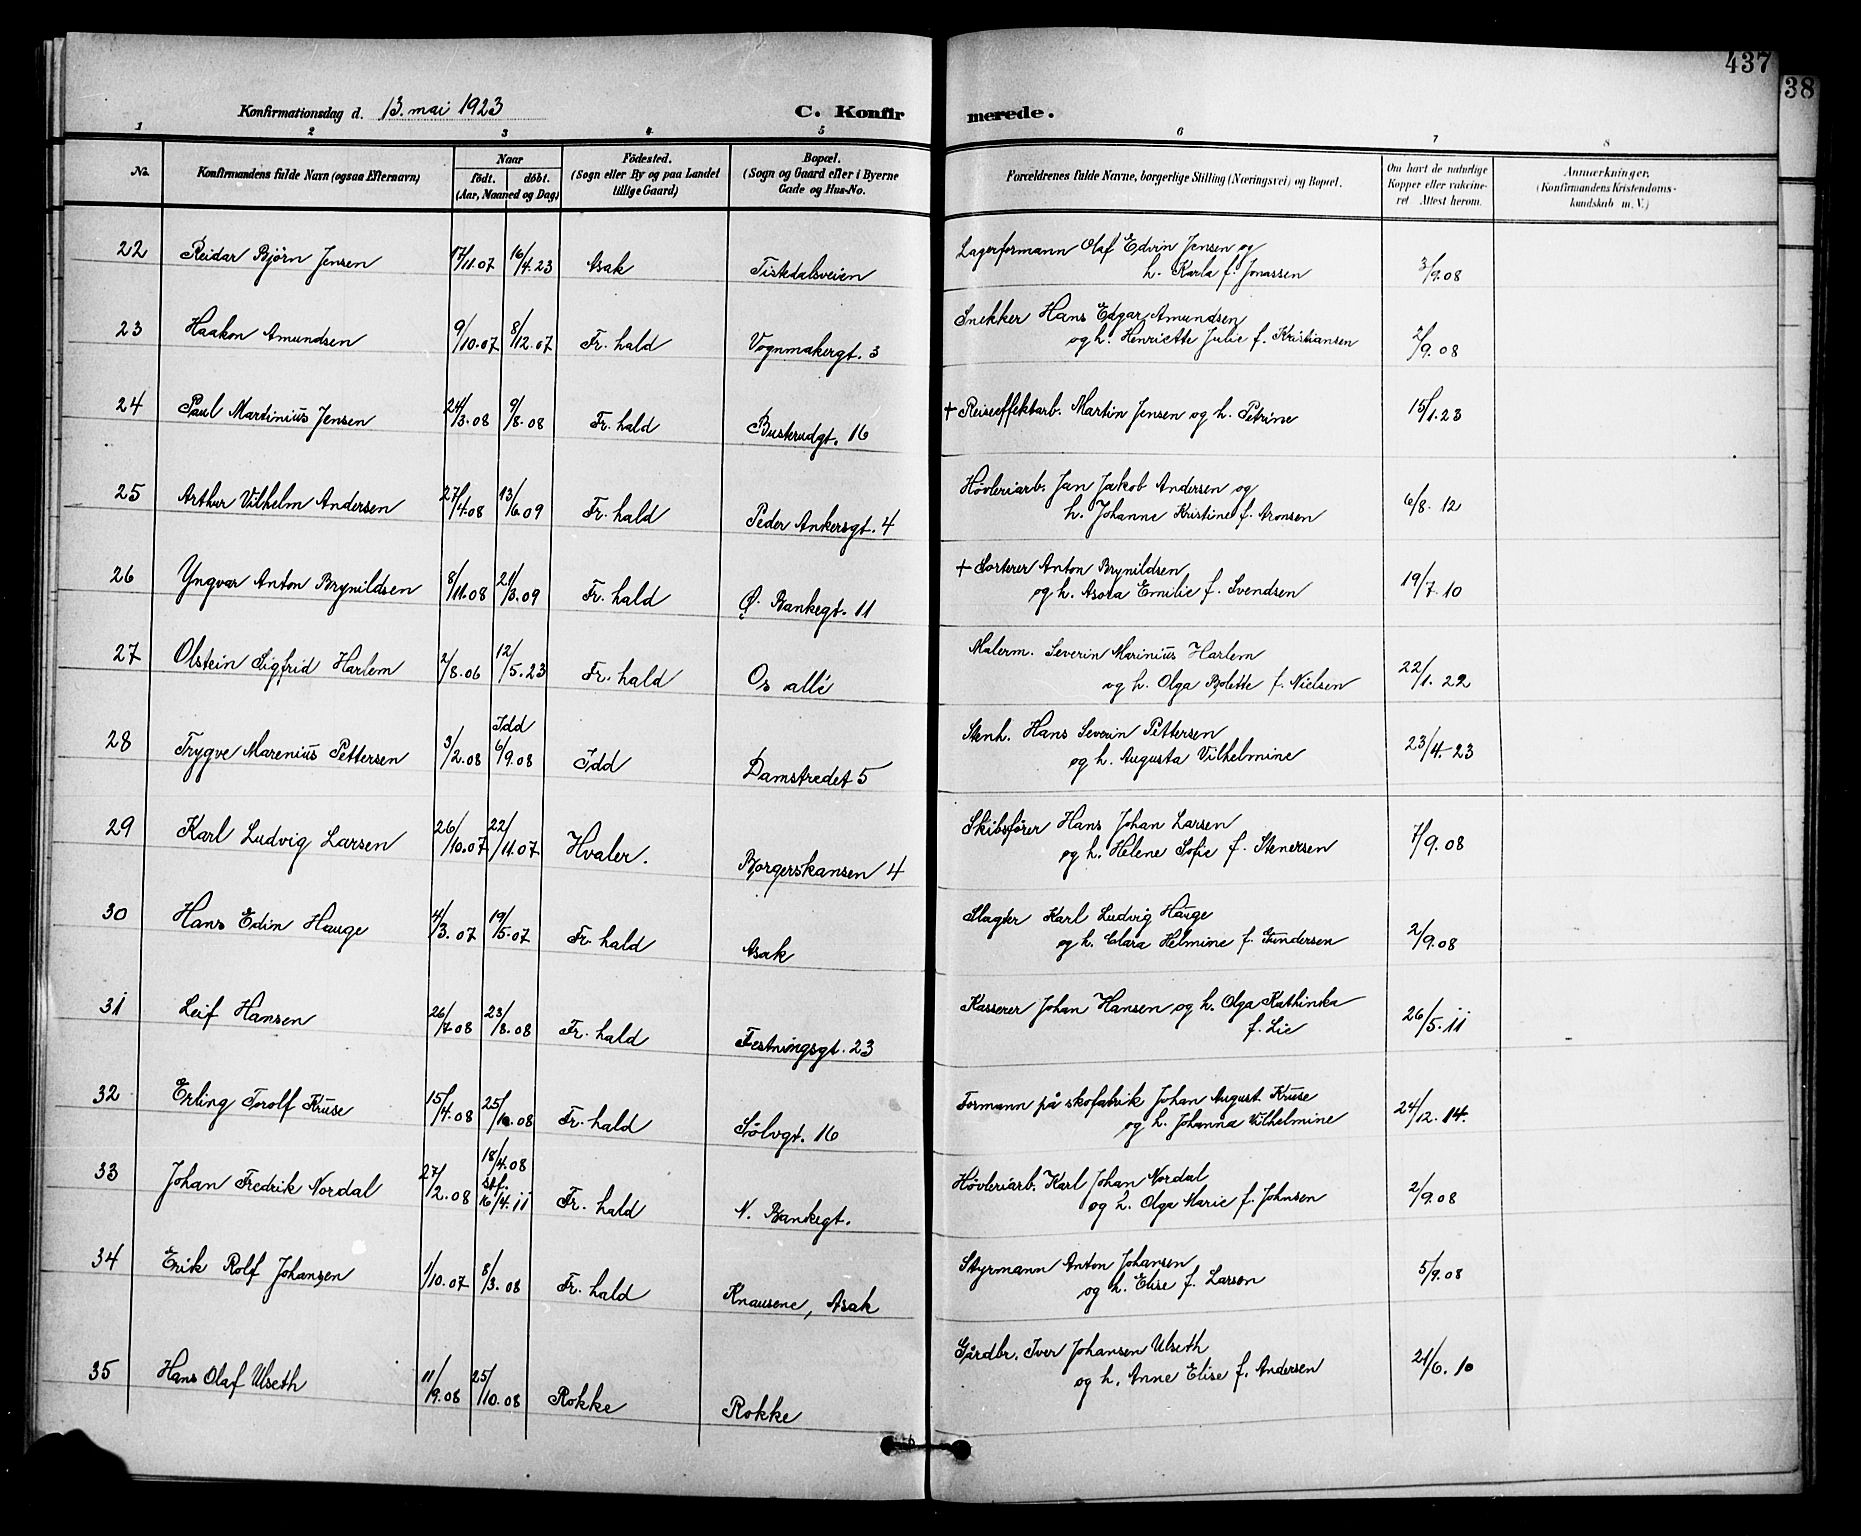 437
38
Konfirmationsdag d. 13. mai 1923 C. Konfirmerede.
1 2 3 4 5 6 7 8
No. Konfirmandens fulde Navn (ogsaa Efternavn) Naar født. døbt. (Aar, Maaned og Dag) Fødested. (Sogn eller By og paa Landet tillige Gaard) Bopæl. (Sogn og Gaard eller i Byerne Gade og Hus-No. Forældrenes fulde Navne, borgerlige Stilling (Næringsvei) og Bopæl. Om havt de naturlige Kopper eller vakcineret Attest herom. Anmærkninger. (Konfirmandens Kristendomskundskab m. V.)
22 Reidar Bjørn Jensen 17/11.07 16/4.23 Asak Tistedalsveien Lagerformann Olaf Edvin Jensen og 3/9.08
h. Karla f. Jonassen
23 Haakon Amundsen 9/10.07 8/12.07 Fr. hald Vognmakergt. 3 Snekker Hans Edgar Amundsen 2/9.08
og h. Henriette Julie f. Kristiansen
24 Paul Martinius Jensen 24/3.08 9/8.08 Fr. hald Buskrudgt. 16 + Reiseeffektarb. Martin Jensen og h. Petrine 15/1.23
25 Arthur Vilhelm Andersen 27/4.08 13/6.09 Fr. hald Peder Ankersgt. 4 Høvleriarb. Jan Jakob Andersen og 6/8. 12
h. Johanne Kristine f. Aronsen
26 Yngvar Anton Brynildsen 8/11.08 21/3.09 Fr. hald Ø. Bankegt. 11 + Sorterer Anton Brynildsen 19/7.10
og h. Asora Emilie f. Svendsen
27 Olstein Sigfrid Harlem 2/8.06 12/5.23 Fr. hald Os allé Malerm. Severin Marinius Harlem 22/1.22
og h. Olga Bolette f. Nielsen
28 Trygve Marenius Pettersen 3/2.08 Idd 6/9.08 Idd Damstredet 5 Stenh. Hans Severin Pettersen 23/4.23
og h. Augusta Vilhelmine
29 Karl Ludvig Larsen 26/10.07 22/11.07 Hvaler. Borgerskansen 4 Skibsfører Hans Johan Larsen 7/9.08
og h. Helene Sofie f. Stenersen
30 Hans Edin Hauge 4/3.07 19/5.07 Fr. hald Asak Slagter Karl Ludvig Hauge 2/9.08
og h. Clara Helmine f. Gundersen
31 Leif Hansen 26/7.08 23/8.08 Fr. hald Festningsgt. 23 Kasserer Johan Hansen og h. Olga Kathinka 26/5.11
f. Lie
32 Erling Torolf Kruse 15/4.08 25/10.08 Fr. hald Sølvgt. 16 Formann på skofabrik Johan August Kruse 24/12.14.
og h. Johanna Vilhelmine
33 Johan Fredrik Nordal 27/2.08 18/4.08 stf. 16/4.11 Fr. hald N. Bankegt. Høvleriarb. Karl Johan Nordal 2/9.08
og h. Olga Marie f. Johnsen
34 Erik Rolf Johansen 1/10.07 8/3.08 Fr. hald Knausene, Asak Styrmann Anton Johansen 5/9.08
og h. Elise f. Larsen
35 Hans Olaf Ulseth 11/9.08 25/10.08 Rokke Rokke Gårdbr. Iver Johansen Ulseth 21/6.10
og h. Anne Elise f. Andersen